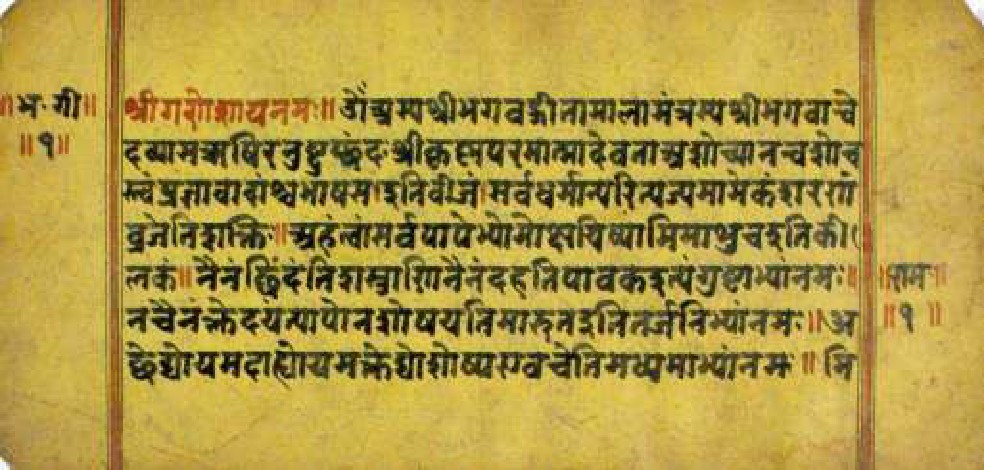 ॥भ॰गी॥
॥१॥
श्रीगणेशायनमः॥ ॐअस्यश्रीभगवद्गीतामालामंत्रस्यश्रीभगवान्वे
दव्यासऋषिरनुष्टुप्छंदःश्रीकृष्णपरमात्मादेवताअशोच्यानन्वशोच
स्त्वंप्रज्ञावादांश्चभाषसइतिबीजं।सर्वधर्मान्परित्यज्यमामेकंशरणं
व्रजेतिशक्तिः॥अहंत्वांसर्वपापेभ्योमोक्षयिष्यामिमाशुचइतिकी
लकं॥नैनंछिंदंतिशस्त्राणिनैनंदहतिपावकइत्यंगुष्ठाभ्यांनमः॥
नचैनंक्लेदयंत्यापोनशोषयतिमारुतइतितर्जनिभ्यांनमः॥अ
छेद्योयमदाह्योयमक्लेद्योशोष्यएवचेतिमध्यमाभ्यांनमः॥नि
॥राम॥
॥१॥